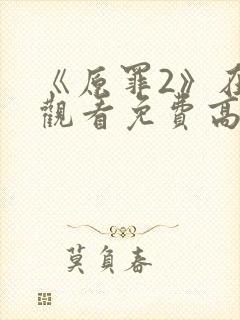 《原罪2》在
觀看免費高
莫負春